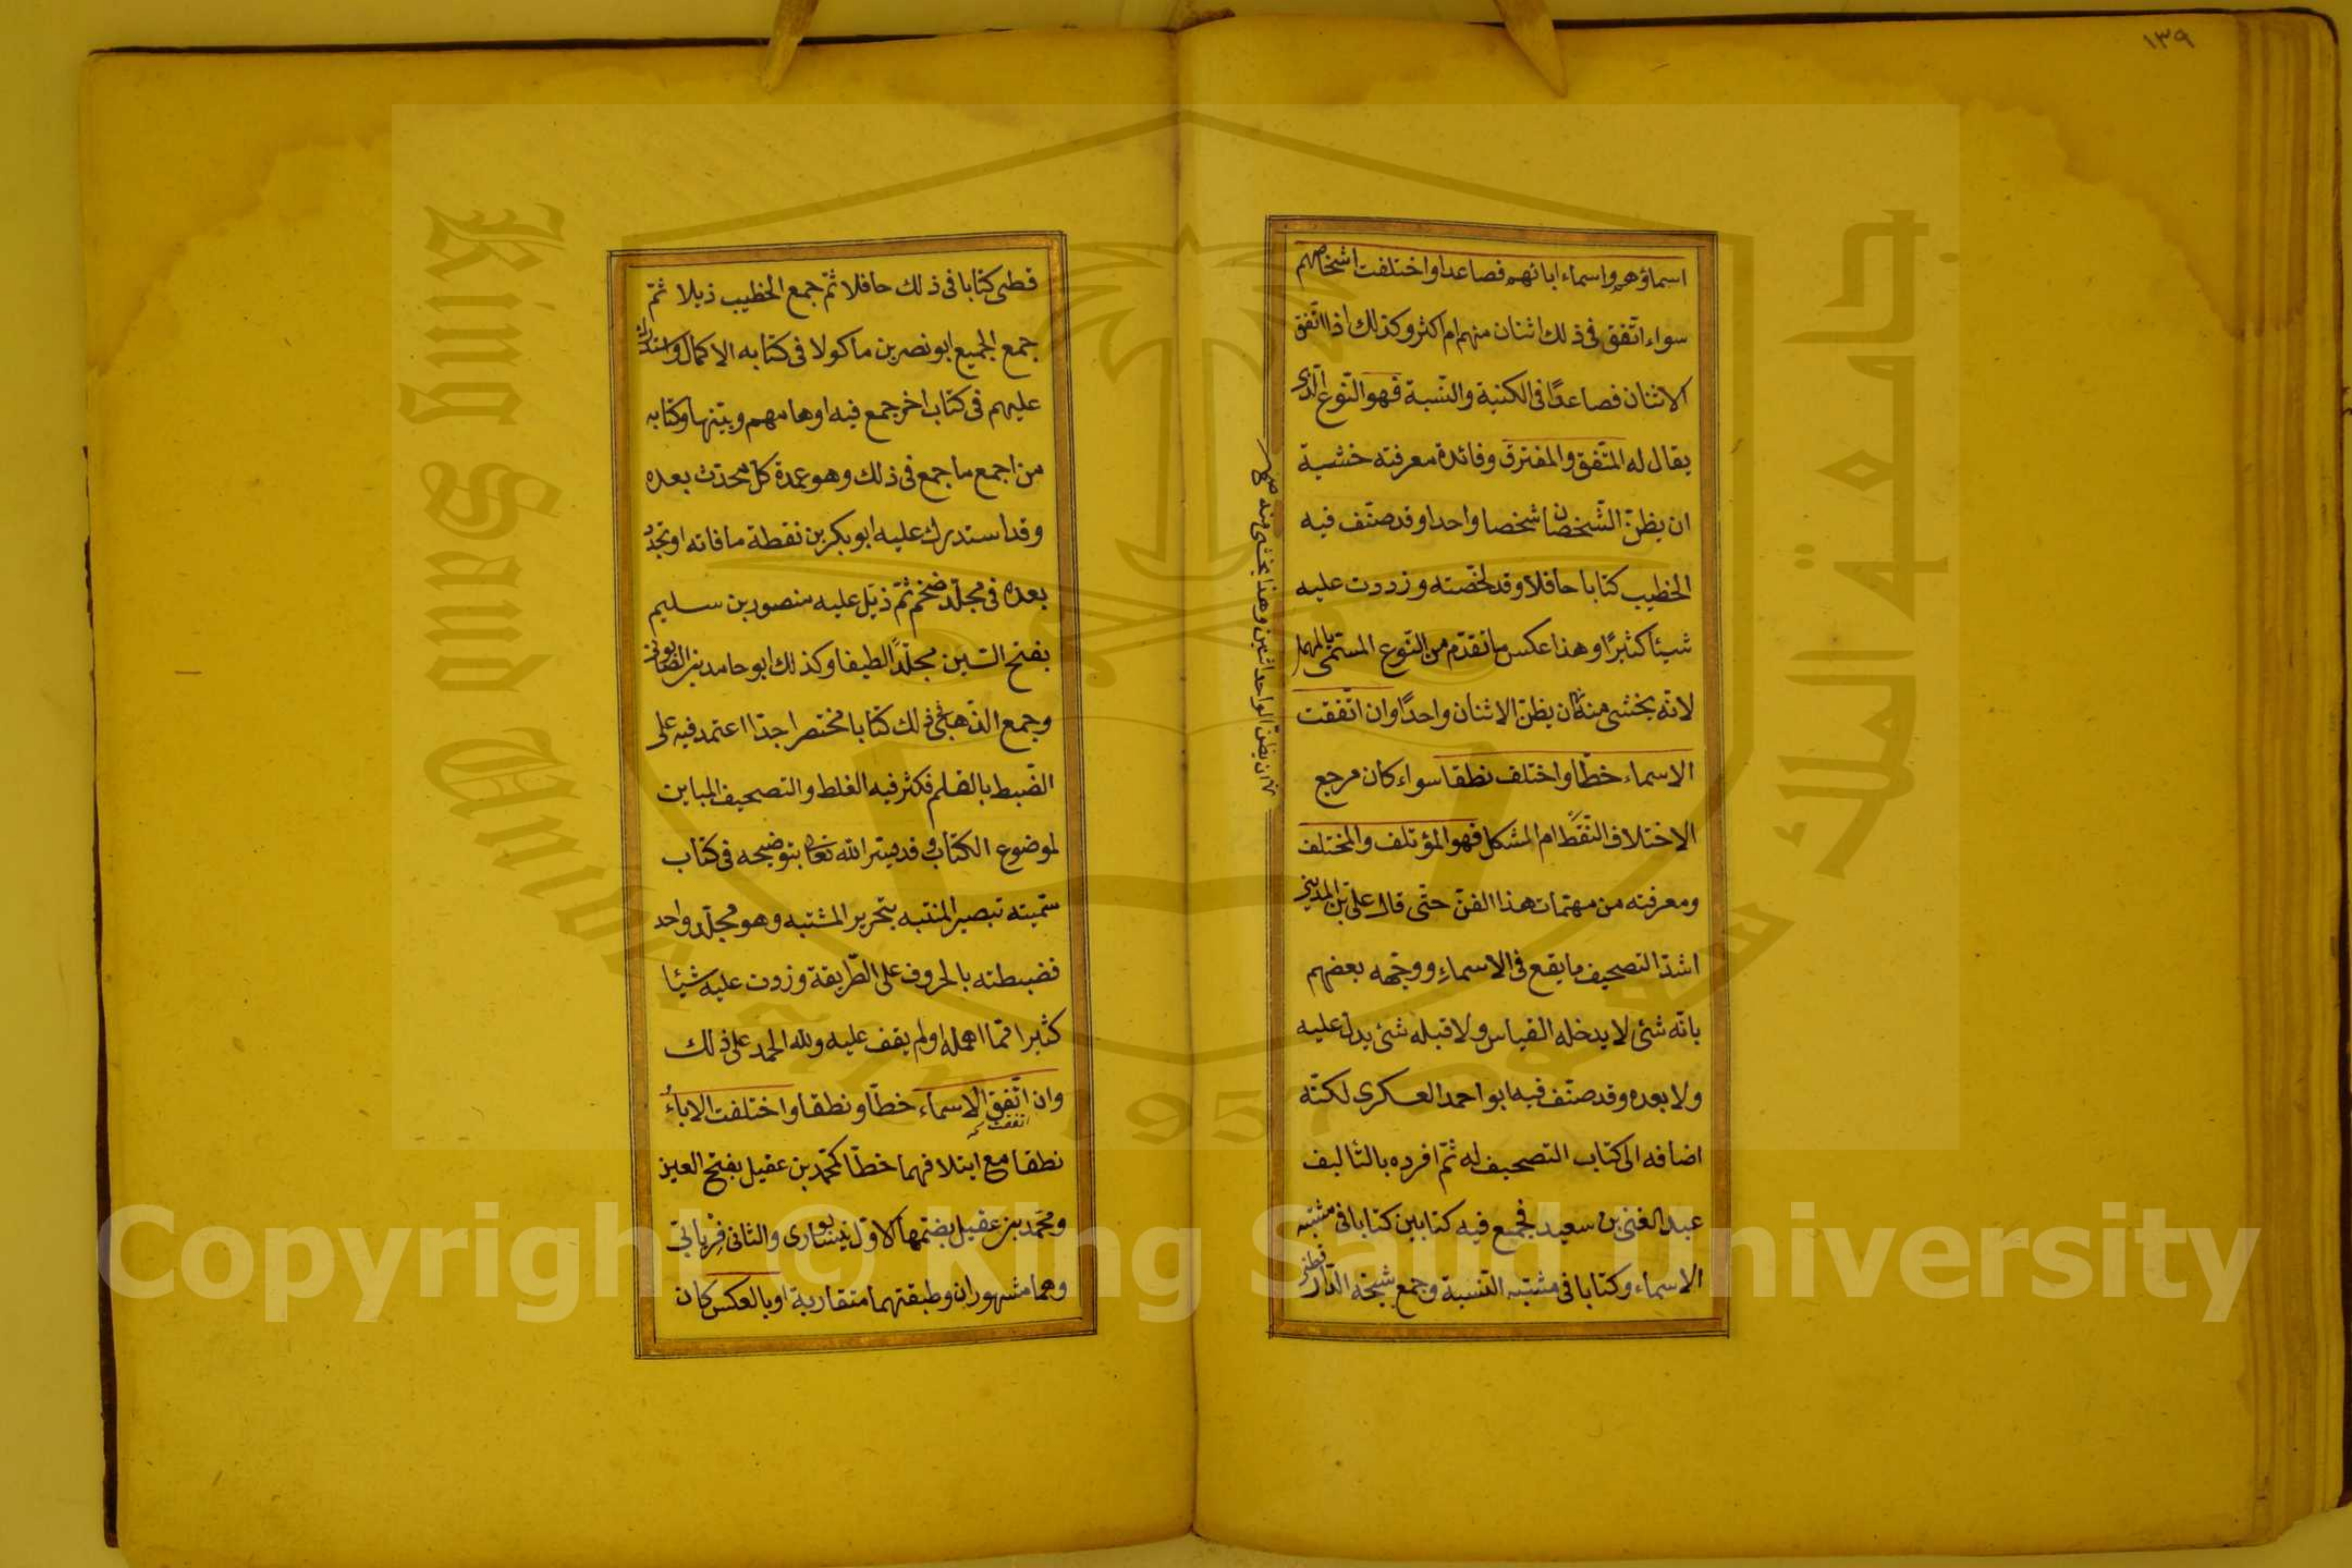 ١٣٩
اسماؤهم واسماء ابائهم فصاعدا واختلفت اشخاصهم
سواء اتّفق فى ذلك اثنان منهم ام اكثر وكذلك اذا اتّفق
الاثنان فصاعدًا فى الكنية والنّسبة فهو النّوع الّذى
يقال له المتّفق والمفترق وفائدة معرفته خشية
ان يظنّ الشّخصان شخصا واحدا وقد صنّف فيه
الخطيب كتابا حافلا وقد لخّصته وزددت عليه
شيئا كثيرًا وهذا عكس ما تقدّم من النّوع المسمّى بالمهمل
لانّه يخشى منه ان يظنّ الاثنان واحدًا وان اتّفقت
الاسماء خطّا واختلف نطقا سواء كان مرجع
الاختلاف النّقط ام الشكل فهو المؤتلف والمختلف
ومعرفته من مهمّات هذا الفنّ حتّى قال علىّ بن المدينى
اشدّ التصحيف ما يقع فى الاسماء ووجّهه بعضهم
بانّه شئ لا يدخله القياس ولا قبله شئ يدلّ عليه
ولا بعده وقد صنّف فيه ابو احمد العسكرى لكنّه
اضافه الى كتاب التصحيف له ثمّ افرده بالتأليف
عبد الغنى بن سعيد فجمع فيه كتابين كتابا فى مشتبه
الاسماء وكتابا فى مشتبه النّسبة وجمع شيخه الدّار قطنى
ان يظنّ الواحد اثنين وهذا يخشى منه
قطنى كتابا فى ذلك حافلا ثمّ جمع الخطيب ذيلا ثمّ
جمع الجميع ابو نصر بن ماكولا فى كتابه الاكمال واستدرك
عليهم فى كتاب اخر جمع فيه اوهامهم وبيّنها وكتابه
من اجمع ما جمع فى ذلك وهو عمدة كلّ محدّث بعده
وقد استدرك عليه ابو بكر بن نقطة ما فاته او تجدّد
بعده فى مجلّد ضخم ثمّ ذيّل عليه منصور بن سليم
بفتح السّين مجلّدًا لطيفا وكذلك ابو حامد بن الصّابونى
وجمع الذّهبى فى ذلك كتابا مختصرا جدّا اعتمد فيه على
الضّبط بالقلم فكثر فيه الغلط والتصحيف المباين
لموضوع الكتاب وقد يسّر الله تعالى بتوضيحه فى كتاب
سمّيته تبصير المنتبه بتحرير المشتبه وهو مجلّد واحد
فضبطته بالحروف على الطّريقة وزدت عليه شيئا
كثيرا ممّا اهمله او لم يقف عليه ولله الحمد على ذلك
وان اتّفق الاسماء خطّا ونطقا واختلفت الاباء
اتفقت
نطقا مع ايتلافهما خطّا كمحمّد بن عقيل بفتح العين
ومحمّد بن عقيل بضمّها الاوّل نيسابورى والثانى فريابىّ
وهما مشهوران وطبقتهما متقاربة او بالعكس كان
King Saud University
جامعة الملك سعود
1957
Copyright © King Saud University